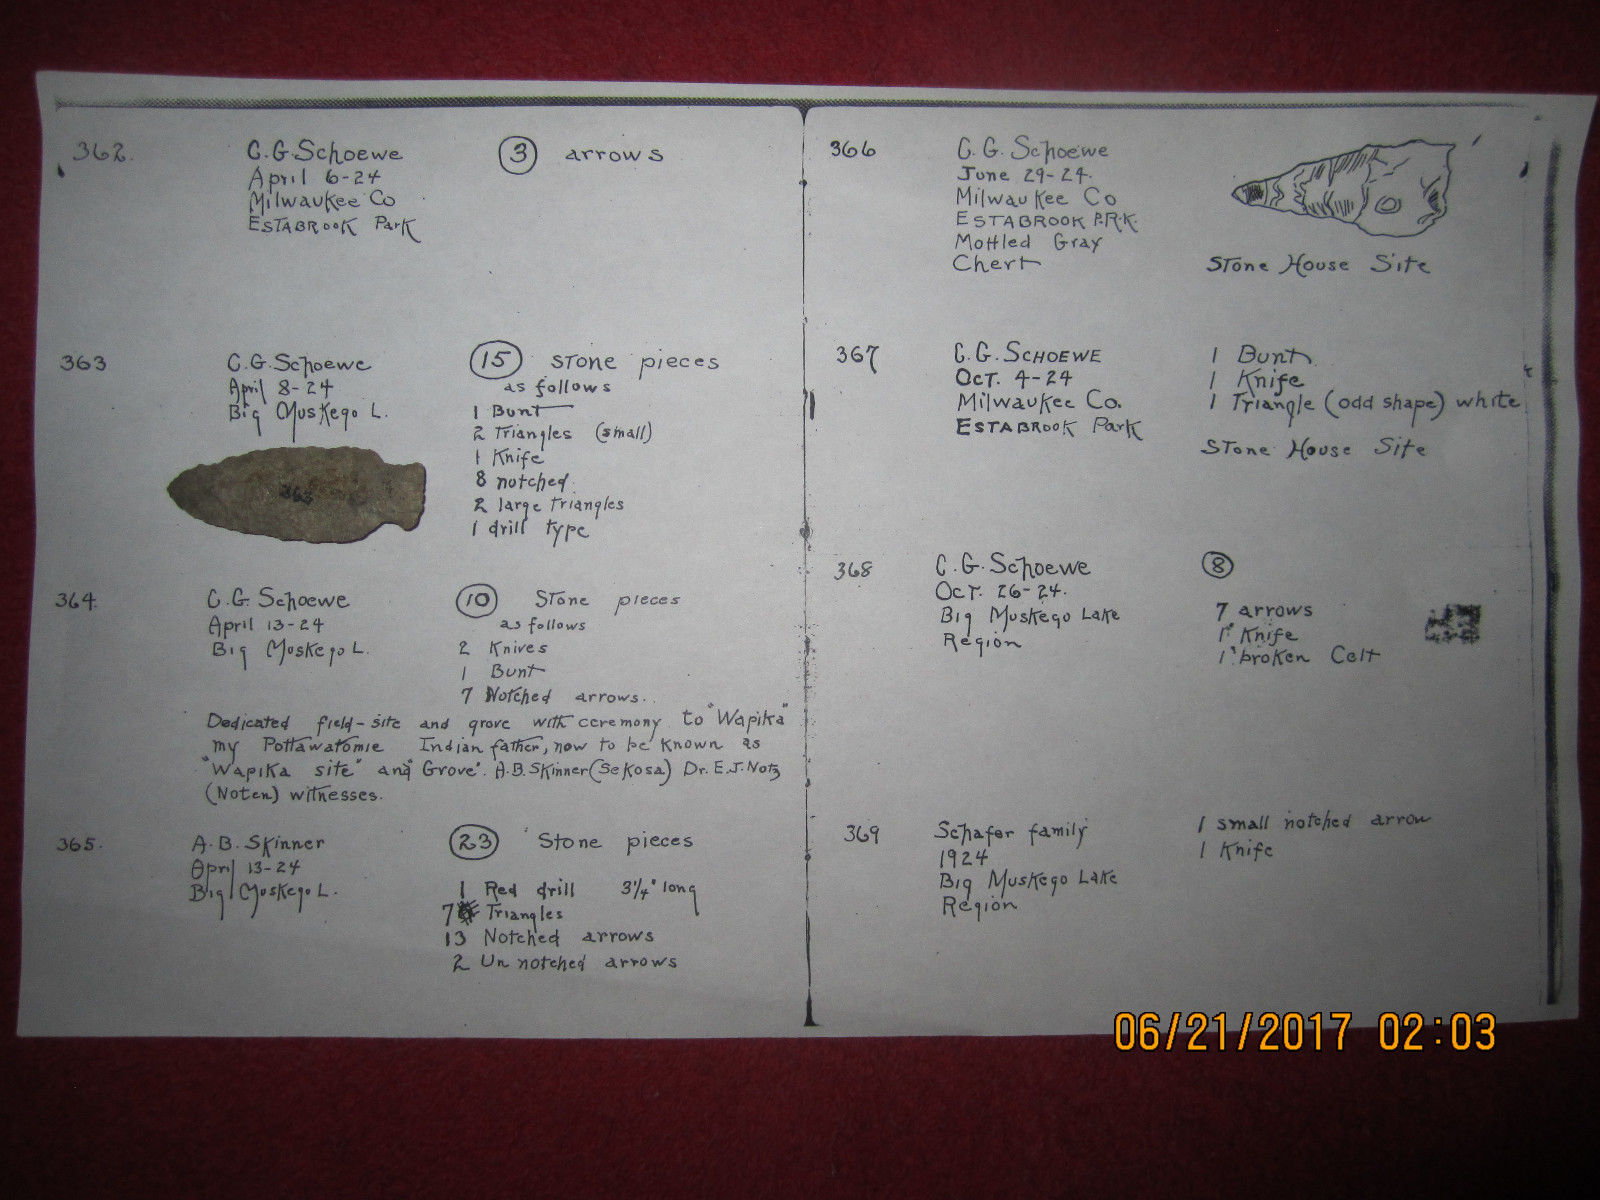 362.
C.G. Schoewe
April 6-24
Milwaukee Co
ESTABROOK Park
3 arrows
363
C.G. Schoewe
April 8-24
Big Muskego L.
363
15 stone pieces
as follows
1 Bunt
2 Triangles (small)
1 Knife
8 notched
2 large Triangles
1 drill type
364.
C.G. Schoewe
April 13-24
Big Muskego L.
10 Stone pieces
as follows
2 Knives
1 Bunt
7 Notched arrows.
Dedicated field-site and grove with ceremony to "Wapika"
my Pottawatomie Indian father, now to be known as
"Wapika site" and "Grove". A.B. Skinner (Sekosa) Dr. E.J. Notz
(Noten) witnesses.
365.
A.B. Skinner
April 13-24
Big Muskego L.
23 Stone pieces
1 Red drill 3 1/4" long
7 Triangles
13 Notched arrows
2 Un notched arrows
366
C.G. Schoewe
June 29-24.
Milwaukee Co
ESTABROOK P.R.K.
Mottled Gray
Chert
Stone House Site
367
C.G. SCHOEWE
Oct. 4-24
Milwaukee Co.
ESTABROOK Park
1 Bunt
1 Knife
1 Triangle (odd shape) white
Stone House Site
368
C.G. Schoewe
Oct. 26-24.
Big Muskego Lake
Region
8
7 arrows
1 Knife
1 broken Celt
369
Schafer family
1924
Big Muskego Lake
Region
1 small notched arrow
1 Knife
06/21/2017 02:03